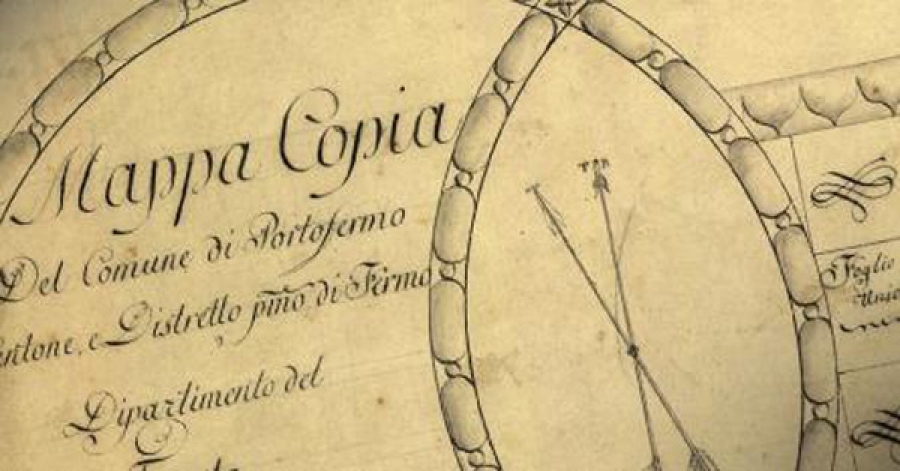 Mappa Copia
Del Comune di Portofermo
e Distretto pm̃o di Fermo
Dipartimento del
Foglio
Unico